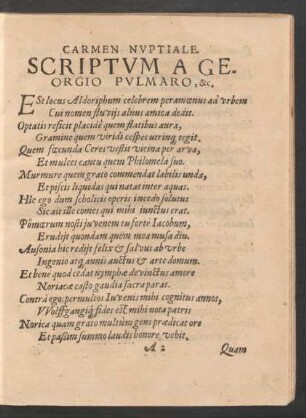 CARMEN NVPTIALE.
SCRIPTVM A GE-
ORGIO PVLMARO, &c.
ESt locus Aldoriphum celebrem peramœnus ad vrbem
Cui nomen fluvijs alnus amica dedit.
Optatis reficit placidè quem flatibus aura,
Gramine quem viridi cespes uterq; tegit.
Quem fœcunda Ceres vestit vicina per arva,
Et mulcet cantu quem Philomela suo.
Murmure quem grato commendat labilis unda,
Et piscis liquidas qui natat inter aquas.
Hic ego dum scholicis operis incedo solutus
Sic ait ille comes qui mihi iunctus erat.
Pômerum nosti juvenem tu forte Iacobum,
Erudijt quondam quem mea musa diu.
Ausonia hic redijt felix & salvus ab urbe
Ingenio atq; annis auctus & arte domum.
Et bene quod cedat nymphæ devinctus amore
Noricæ casto gaudia sacra parat.
Contrà ego: permultos Iuvenis mihi cognitus annos,
VVolffgangiq; fides est mihi nota patris
Norica quam grato multùm gens prædicat ore
Et passim summo laudis honore vehit.
A 2 Quam